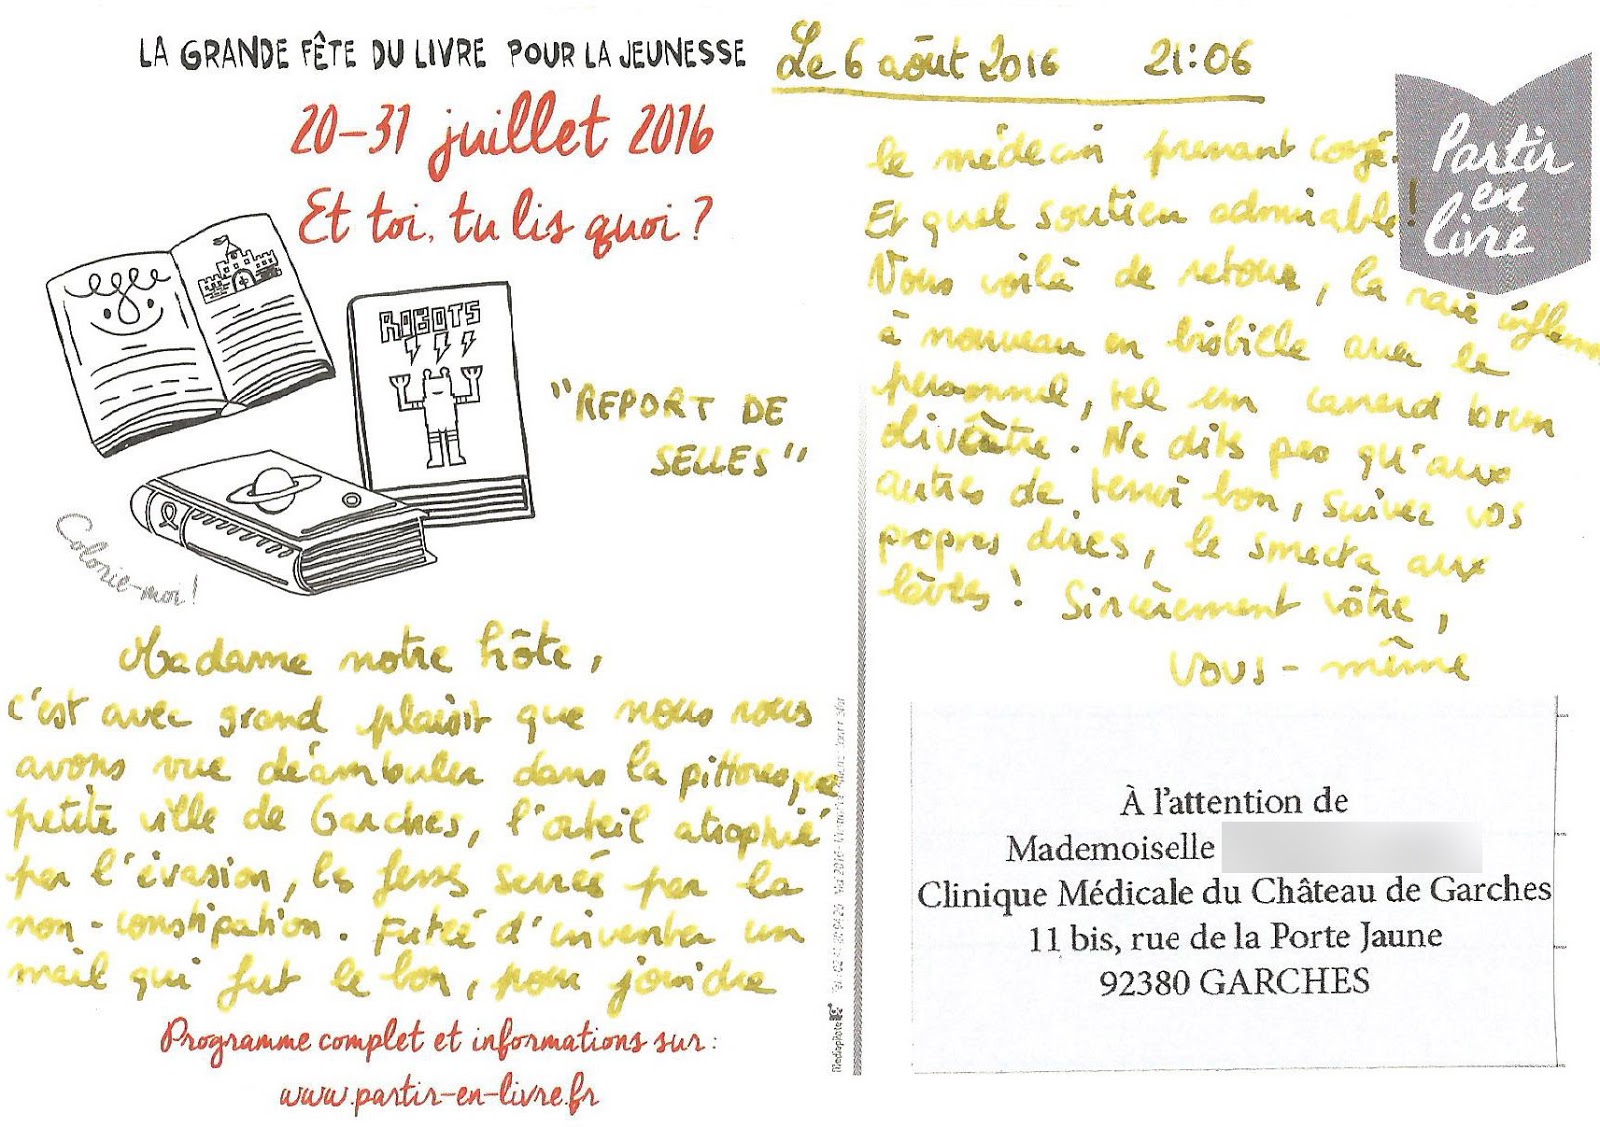 LA GRANDE FÊTE DU LIVRE POUR LA JEUNESSE
20-31 juillet 2016
Et toi, tu lis quoi ?
ROBOTS
Colorie-moi !
"REPORT DE
SELLES"
Madame notre hôte,
c'est avec grand plaisir que nous vous
avons vue déambuler dans la pittoresque
petite ville de Garches, l'orteil atrophié
par l'évasion, les fesses serrées par la
non-constipation. Futée d'inventer un
mail qui fut le bon, pour joindre
Programme complet et informations sur :
www.partir-en-livre.fr
Le 6 août 2016 21:06
le médecin prenant congé.
Et quel soutien admirable !
Vous voilà de retour, la raie
à nouveau en bisbille avec le
personnel, tel un canard
Ne dits pas qu'aux
autres de tenir bon, suivez vos
propres dires, le smecta aux
lèvres ! Sincèrement vôtre,
Vous-même
Partir
en
livre
Mediapilote
À l'attention de
Mademoiselle
Clinique Médicale du Château de Garches
11 bis, rue de la Porte Jaune
92380 GARCHES